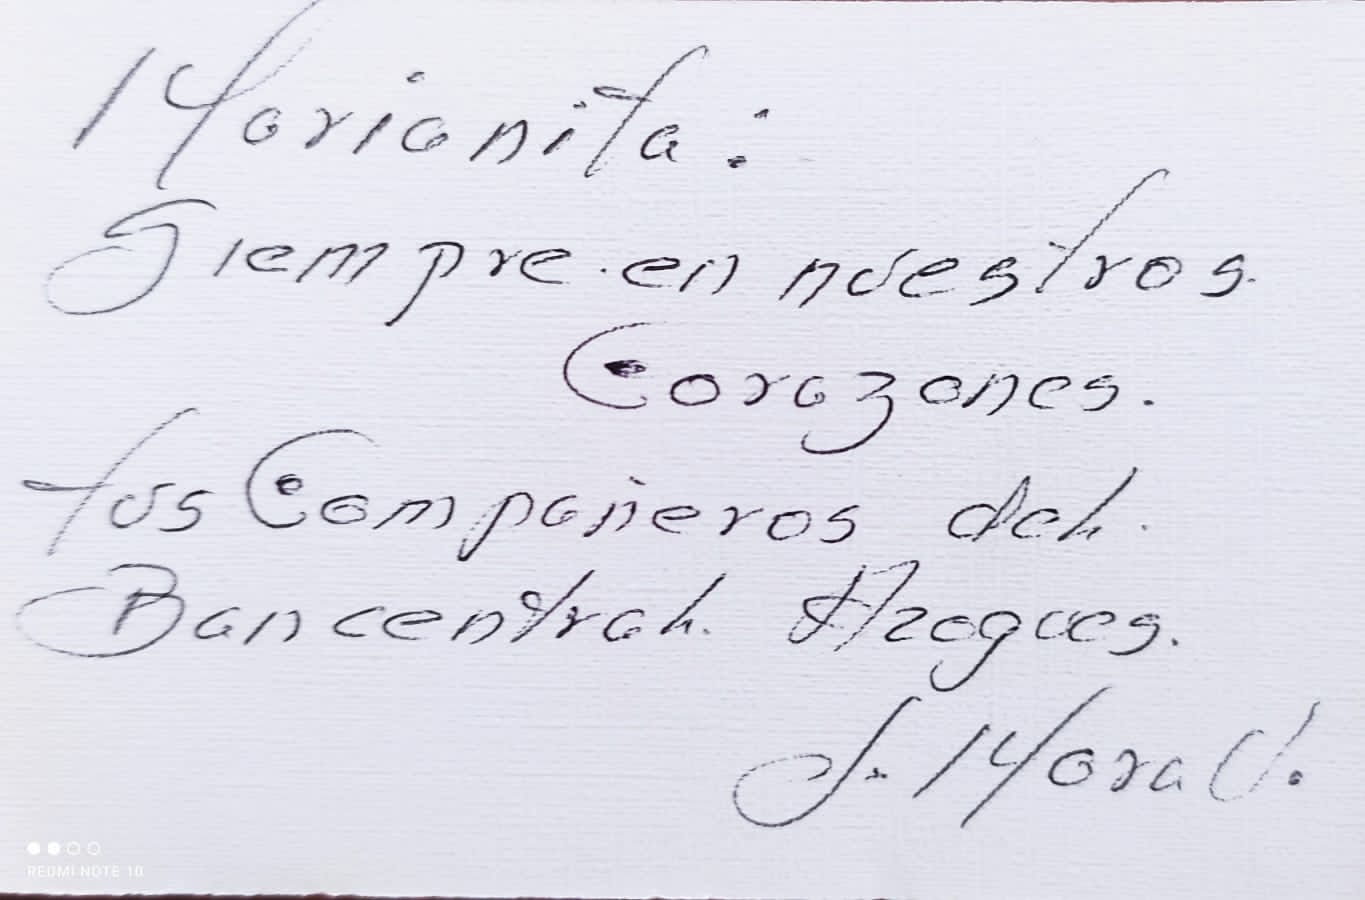 Marianita:
Siempre en nuestros
Corazones.
tus Compañeros del
Bancentral. Azogues.
J. Mora U.
REDMI NOTE 10